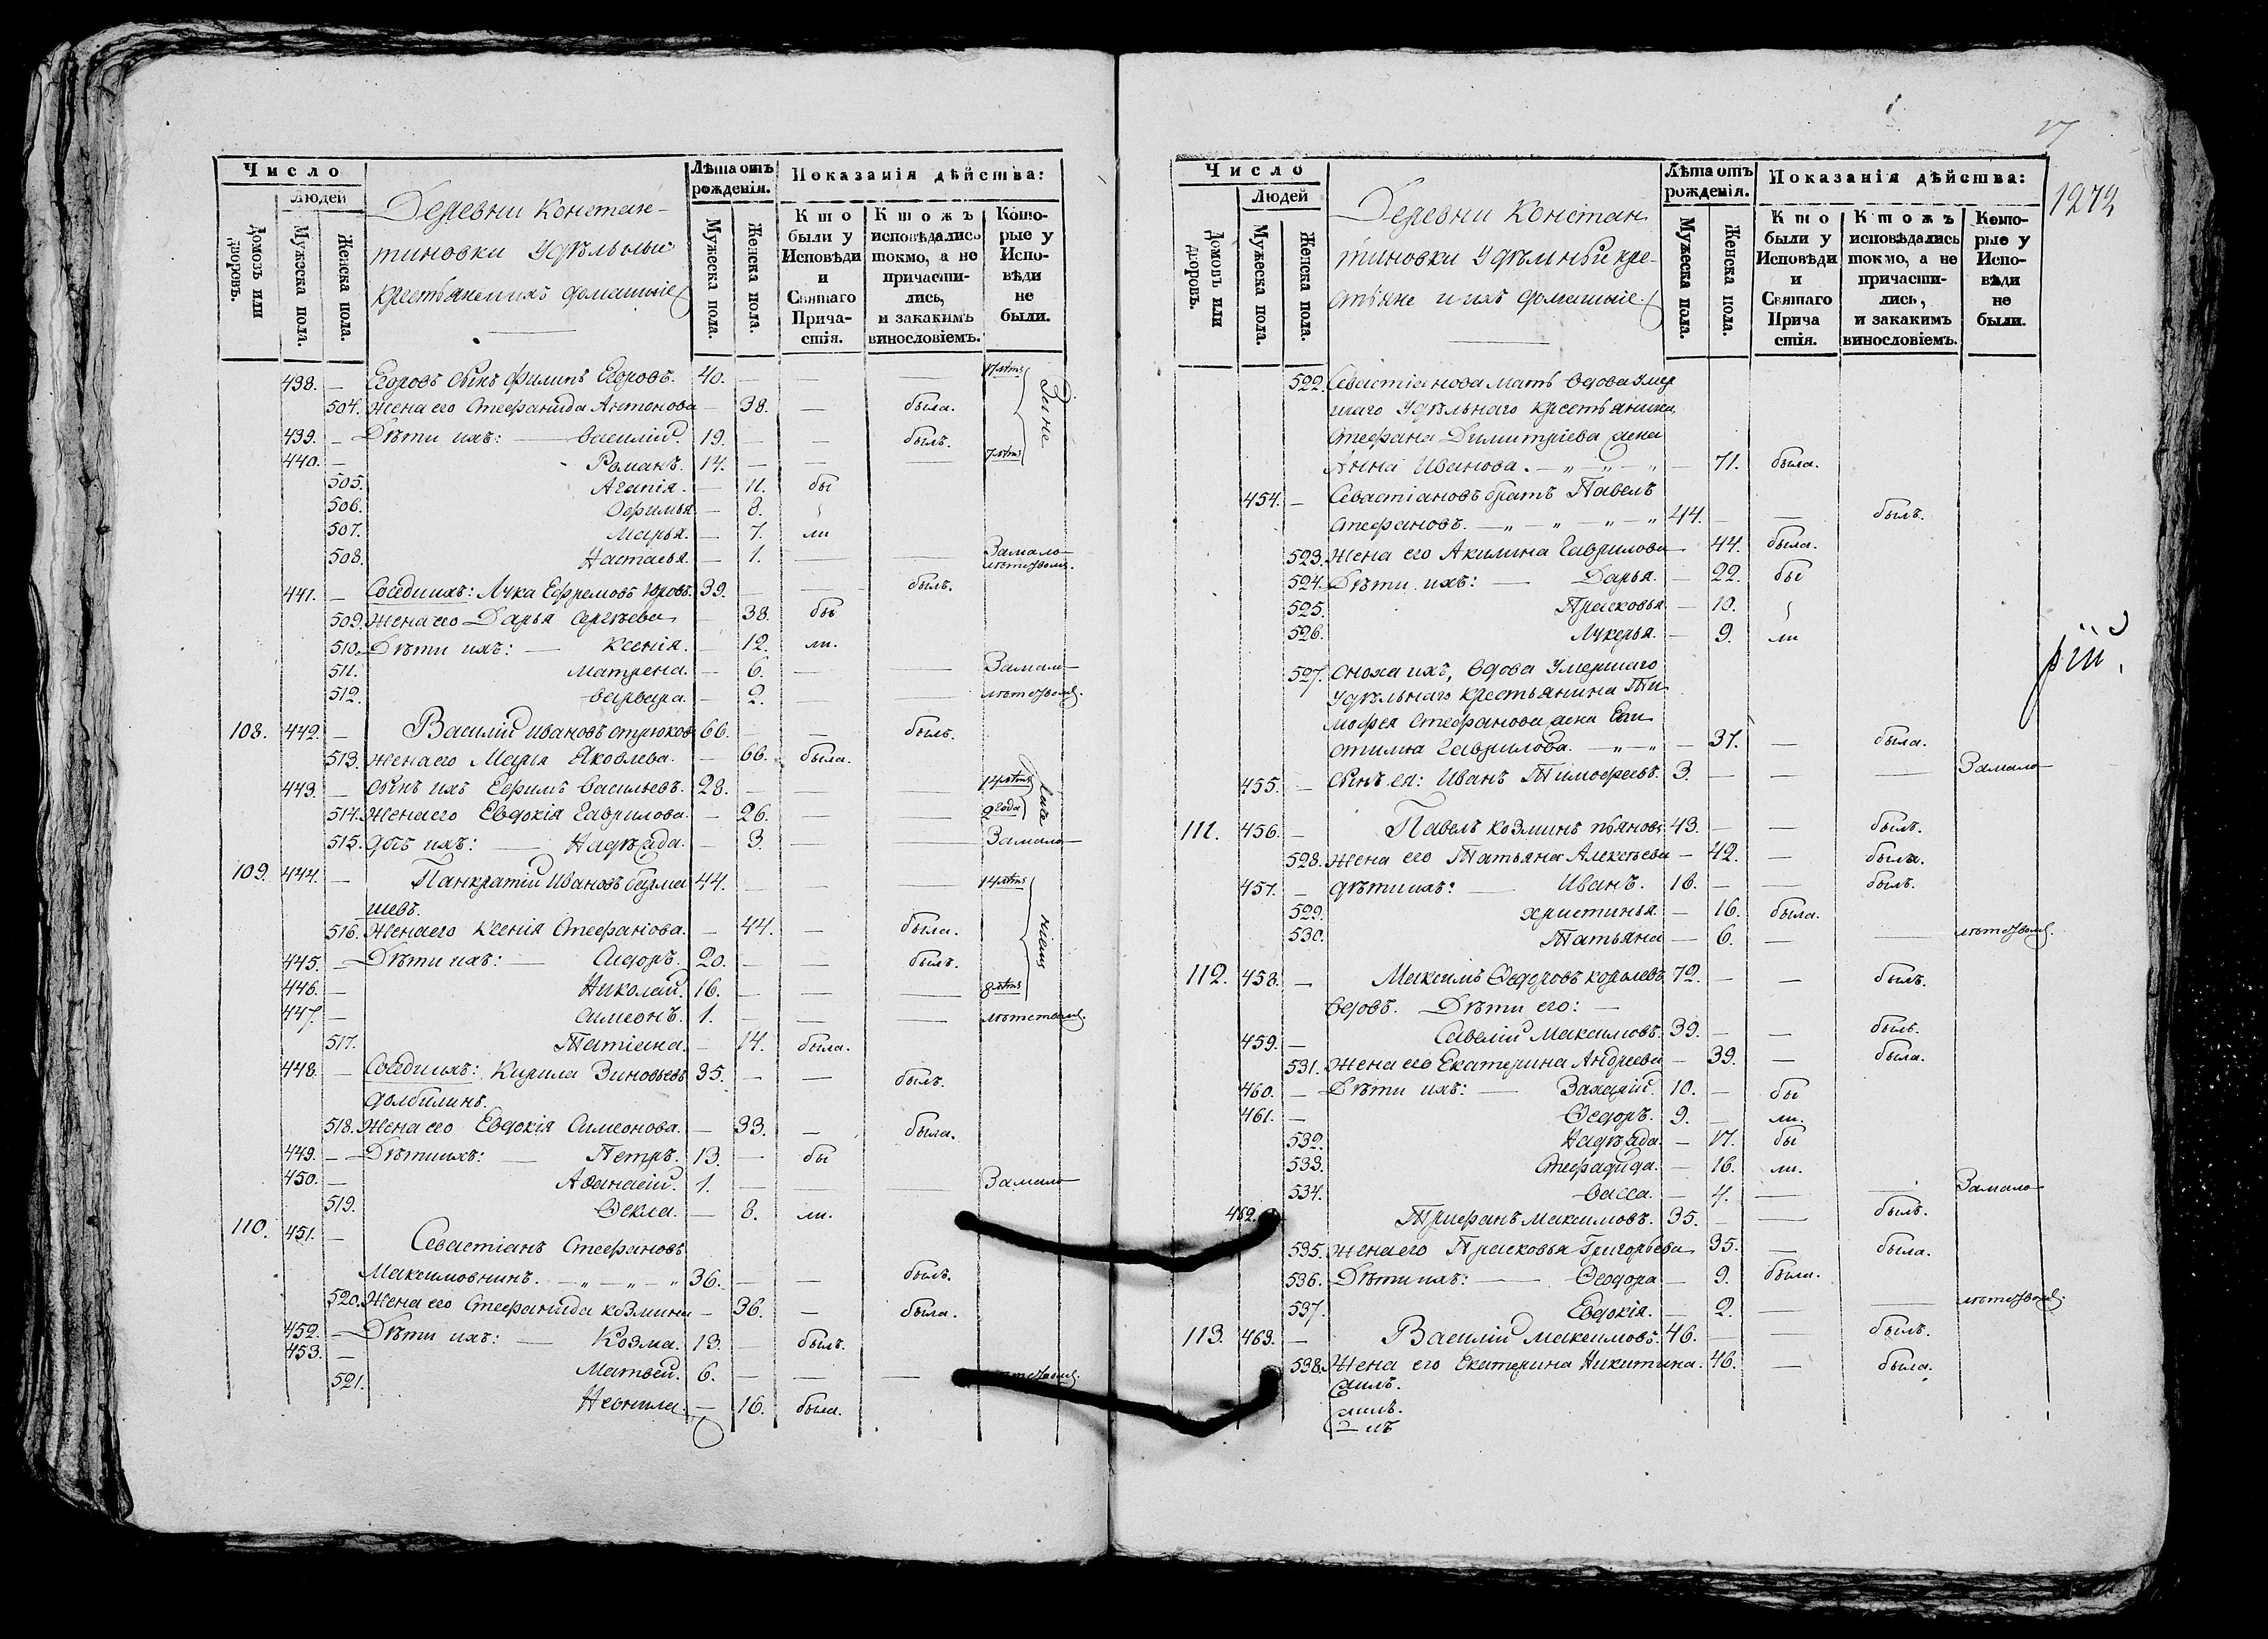 Число
Людей
Домовъ или дворовъ.
Мужеска пола.
Женска пола.
Деревни Констан-
тиновки Удѣльныи
крестьяне и ихъ домашніе
Лѣта отъ рожденія.
Мужеска пола.
Женска пола.
Показанія дѣйства:
Кто были у Исповѣди и Святаго Причастія.
Ктожъ исповѣдались токмо, а не причастились, и закакимъ винословіемъ.
Которые у Исповѣди не были.
438. — Егоровъ сынъ Филипъ Егоровъ. 40. — — —
504. Жена его Стефанида Антонова — 38. — была.
439. — Дѣти ихъ: — Василій. 19. — — былъ.
440. — Романъ. 14. — — — 7 лѣтъ
505. Агапія. — 11. бы
506. Офимья — 8.
507. Марья. — 7. ли
508. Настасья. — 1. — — Замало-
лѣтствомъ.
441. — Сосѣди ихъ: Лука Ефремовъ 39. — — былъ.
509. Жена его Дарья Сергѣева — 38. бы
510. Дѣти ихъ: — Ксенія. — 12. ли.
511. Матрена. — 6. — — Замало-
512. Варвара. — 2. — лѣтствомъ.
108. 442. — Василій Ивановъ Стрюков 66. — — былъ.
513. Жена его Марія Яковлева. — 66. была.
443. — Сынъ ихъ Ефимъ Васильевъ. 28. — — —
514. Жена его Евдокія Гаврилова. — 26. — — 2 года
515. Дочь ихъ: — Надѣжда. — 3. Замало-
109. 444. — Панкратій Ивановъ Бирма 44. — — — 14 лѣтъ
шевъ.
516. Жена его Ксенія Стефанова. — 44. — была.
445. — Дѣти ихъ: — Сидоръ. 20. — — былъ.
446. — Николай. 16. — — — 8 лѣтъ
447. — Симеонъ. 1. — — — лѣтствомъ.
517. Татіана. — 14. была.
448. — Сосѣди ихъ: Кирила Зиновьевъ 35. — — былъ.
Долбилинъ.
518. Жена его Евдокія Симеонова. — 33. — была.
449. — Дѣти ихъ: — Петръ. 13. — бы
450. — Аѳанасій. 1. — — — Замало-
519. Ѳекла. — 8. ли.
110. 451. — Севастіанъ Стефановъ
Максимовнинъ. — „ — „ — „ 36. — — былъ.
520. Жена его Стефанида Козмина — 36. — была.
452. — Дѣти ихъ: — Козма. 13. — былъ.
453. — Матвей. 6. — — — лѣтствомъ.
521. Неонила. — 16. была.
1272
Число
Людей
Домовъ или дворовъ.
Мужеска пола.
Женска пола.
Деревни Констан
тиновки Удѣльныи кре-
стьяне и ихъ домашніе.
Лѣта отъ рожденія.
Мужеска пола.
Женска пола.
Показанія дѣйства:
Кто были у Исповѣди и Святаго Прича стія.
Ктожъ исповѣдались токмо, а не причастились, и закакимъ винословіемъ.
Которые у Исповѣди не были.
522. Севастіанова мать вдова умер
шаго Удѣльнаго крестьянина
Стефана Димитріева жена
Анна Иванова. — „ — „ — „ — 71. была.
454. — Севастіановъ братъ Павелъ
Стефановъ. — „ — „ — „ — „ 44. — — былъ.
523. Жена его Акилина Гаврилова — 44. была.
524. Дѣти ихъ: — Дарья. — 22. бы
525. Прасковья. — 10.
526. Лукерья. — 9. ли
527. Сноха ихъ, вдова умершаго
Удѣльнаго крестьянина Ти
мофея Стефанова жена Епи
стимія Гаврилова. — „ — „ — 37. — была.
455. — Сынъ ея: Иванъ Тимофеевъ. 3. — — — Замало-
рій.
111. 456. — Павелъ Козминъ Пьяновъ 43. — — былъ.
528. Жена его Татьяна Алексѣева — 42. — была.
457. — Дѣти ихъ: — Иванъ. 16. — — былъ.
529. Христинья — 16. была.
530. Татьяна — 6. — — лѣтствомъ.
112. 458. — Максимъ Ѳедоровъ Королевъ 72. — — былъ.
вдовъ. Дѣти его: —
459. — Савелій Максимовъ. 39. — — былъ.
531. Жена его Екатерина Андреева — 39. — была.
460. — Дѣти ихъ: — Захарій. 10. — бы
461. — Ѳедоръ. 9. — ли.
532. Надѣжда. — 17. бы
533. Стефанида. — 16. ли.
534. Васса. — 4. — — Замало-
462. Трифанъ Максимовъ. 35. — — былъ.
535. Жена его Прасковья Григорьева 35. — была.
536. Дѣти ихъ: — Ѳеодора — 9. была.
537. Евдокія. — 2. — — лѣтствомъ.
113. 463. — Василій Максимовъ. 46. — — былъ.
538. Жена его Екатерина Никитина. 46. — была.